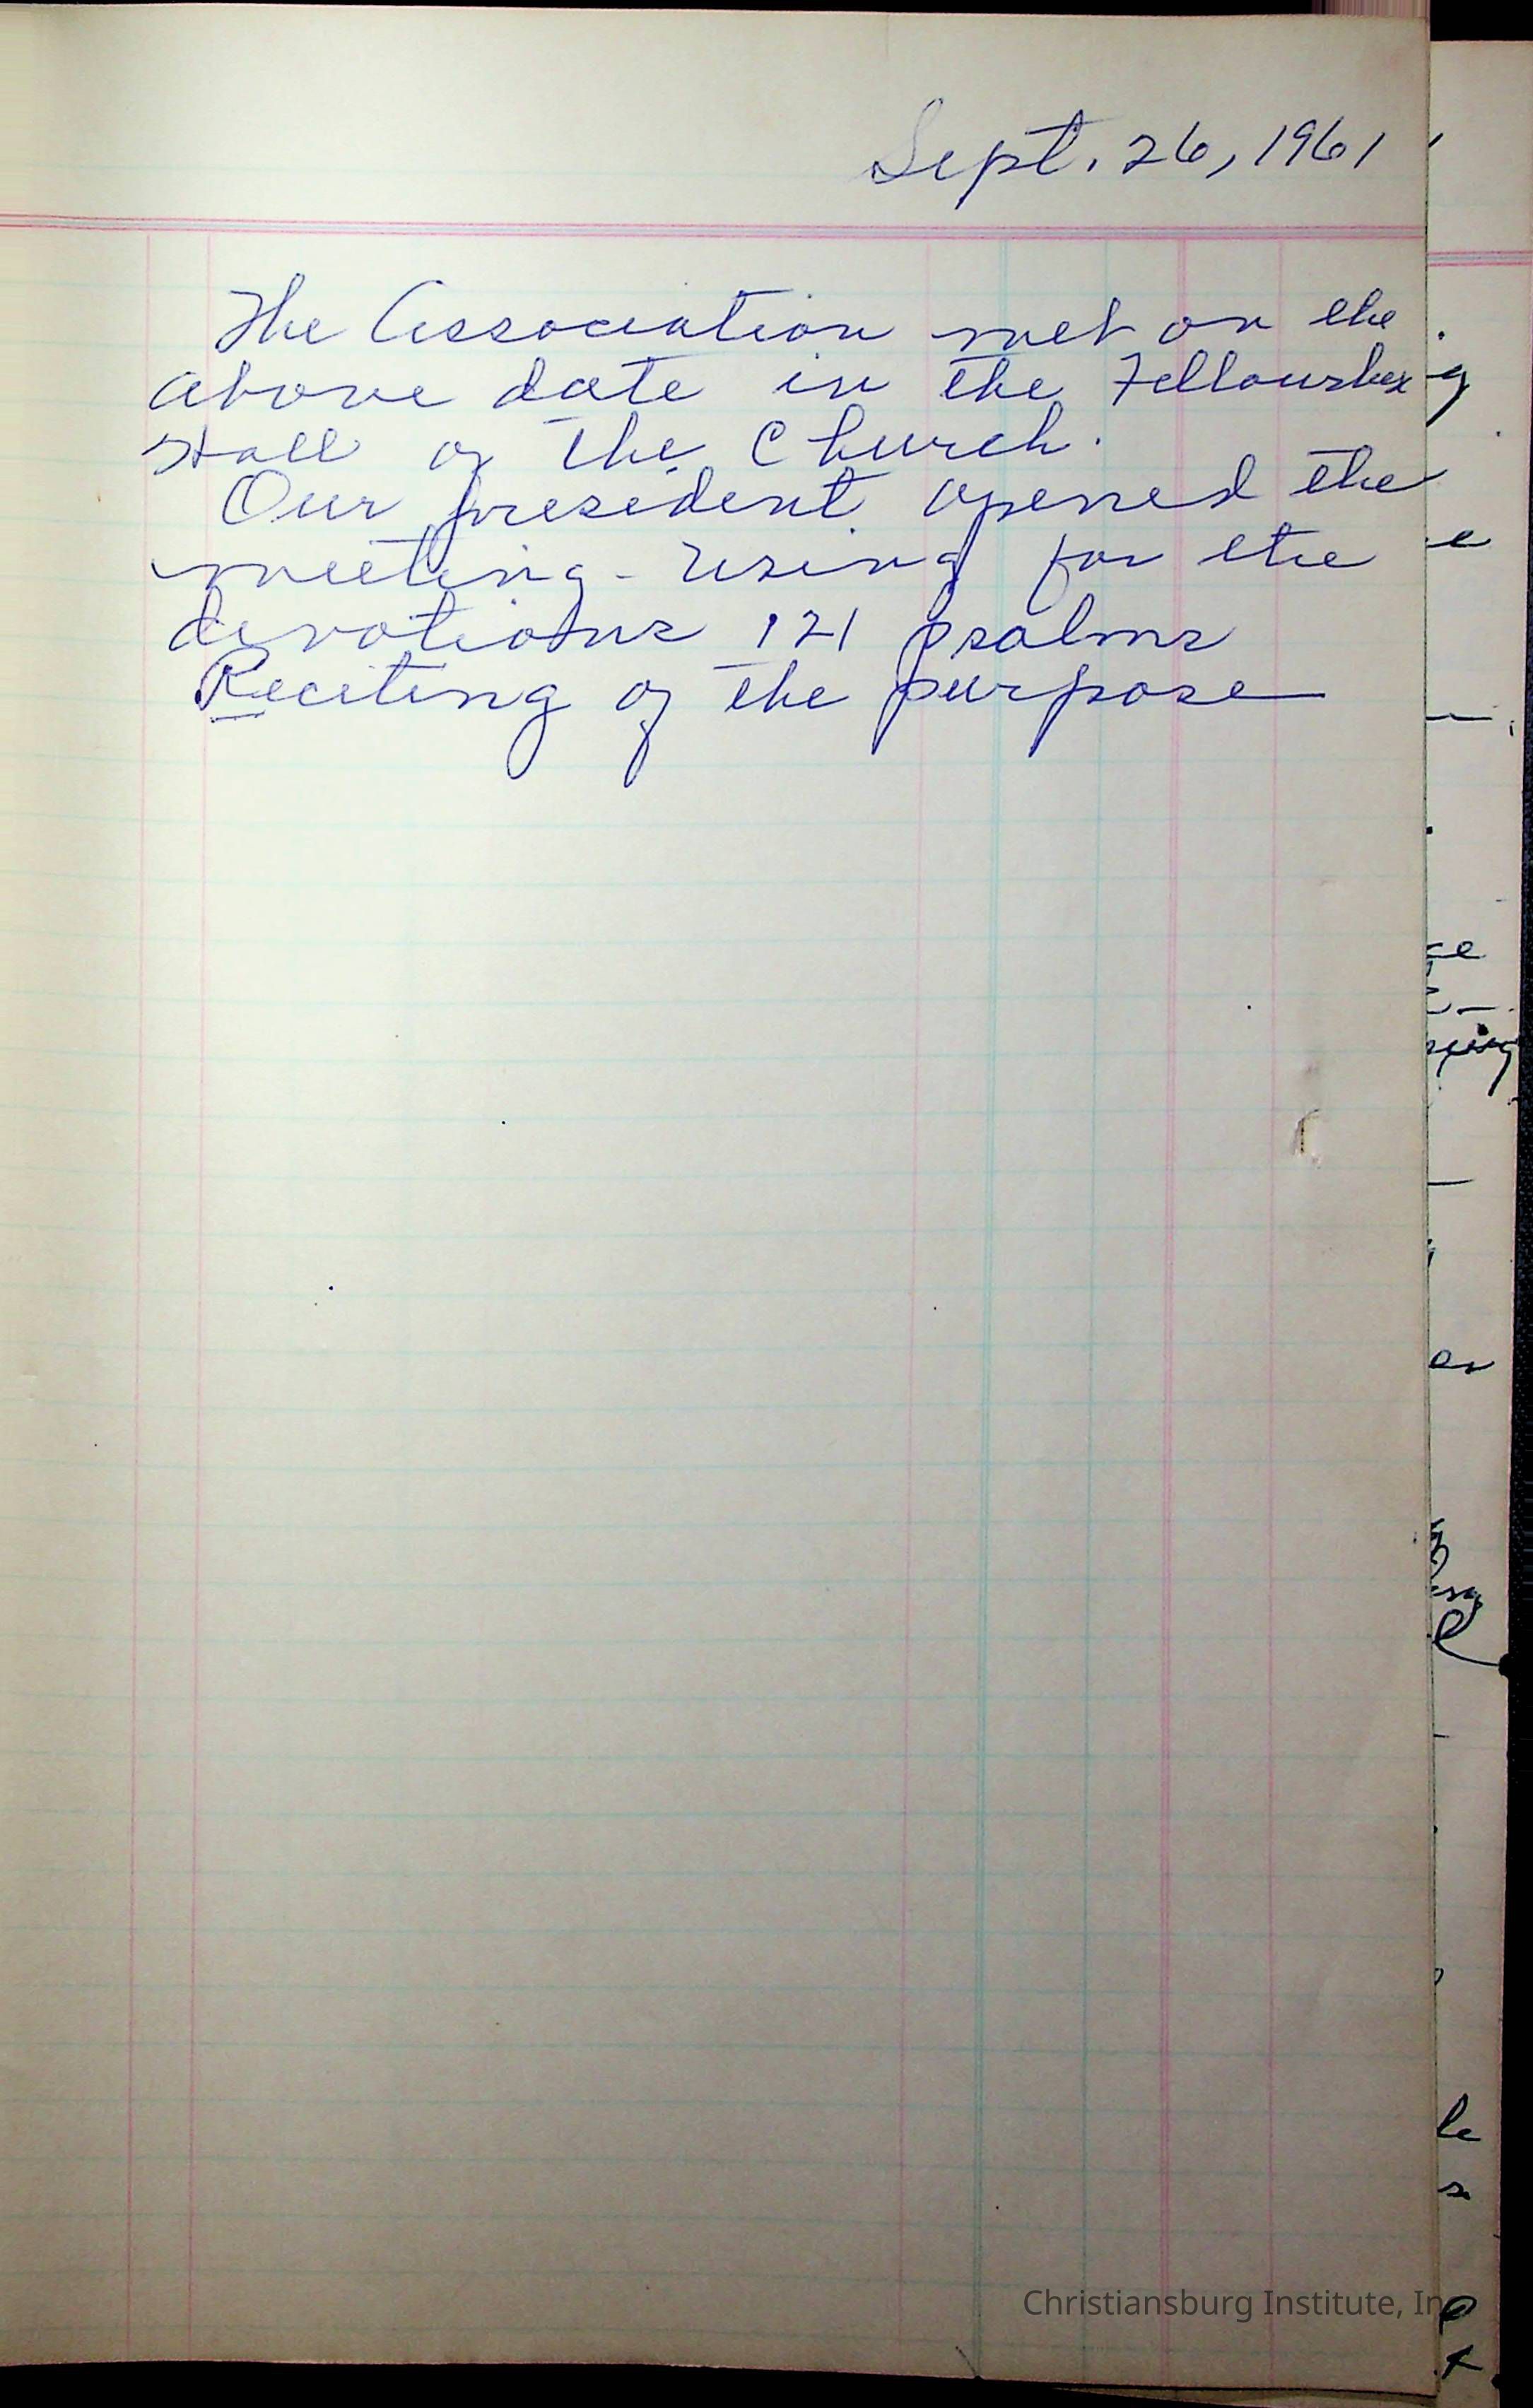 Sept. 26, 1961
The Association met on the
above date in the Fellowship
Hall of the Church.
Our president opened the
meeting - using for the
devotions 121 psalms
Reciting of the purpose
Christiansburg Institute, In